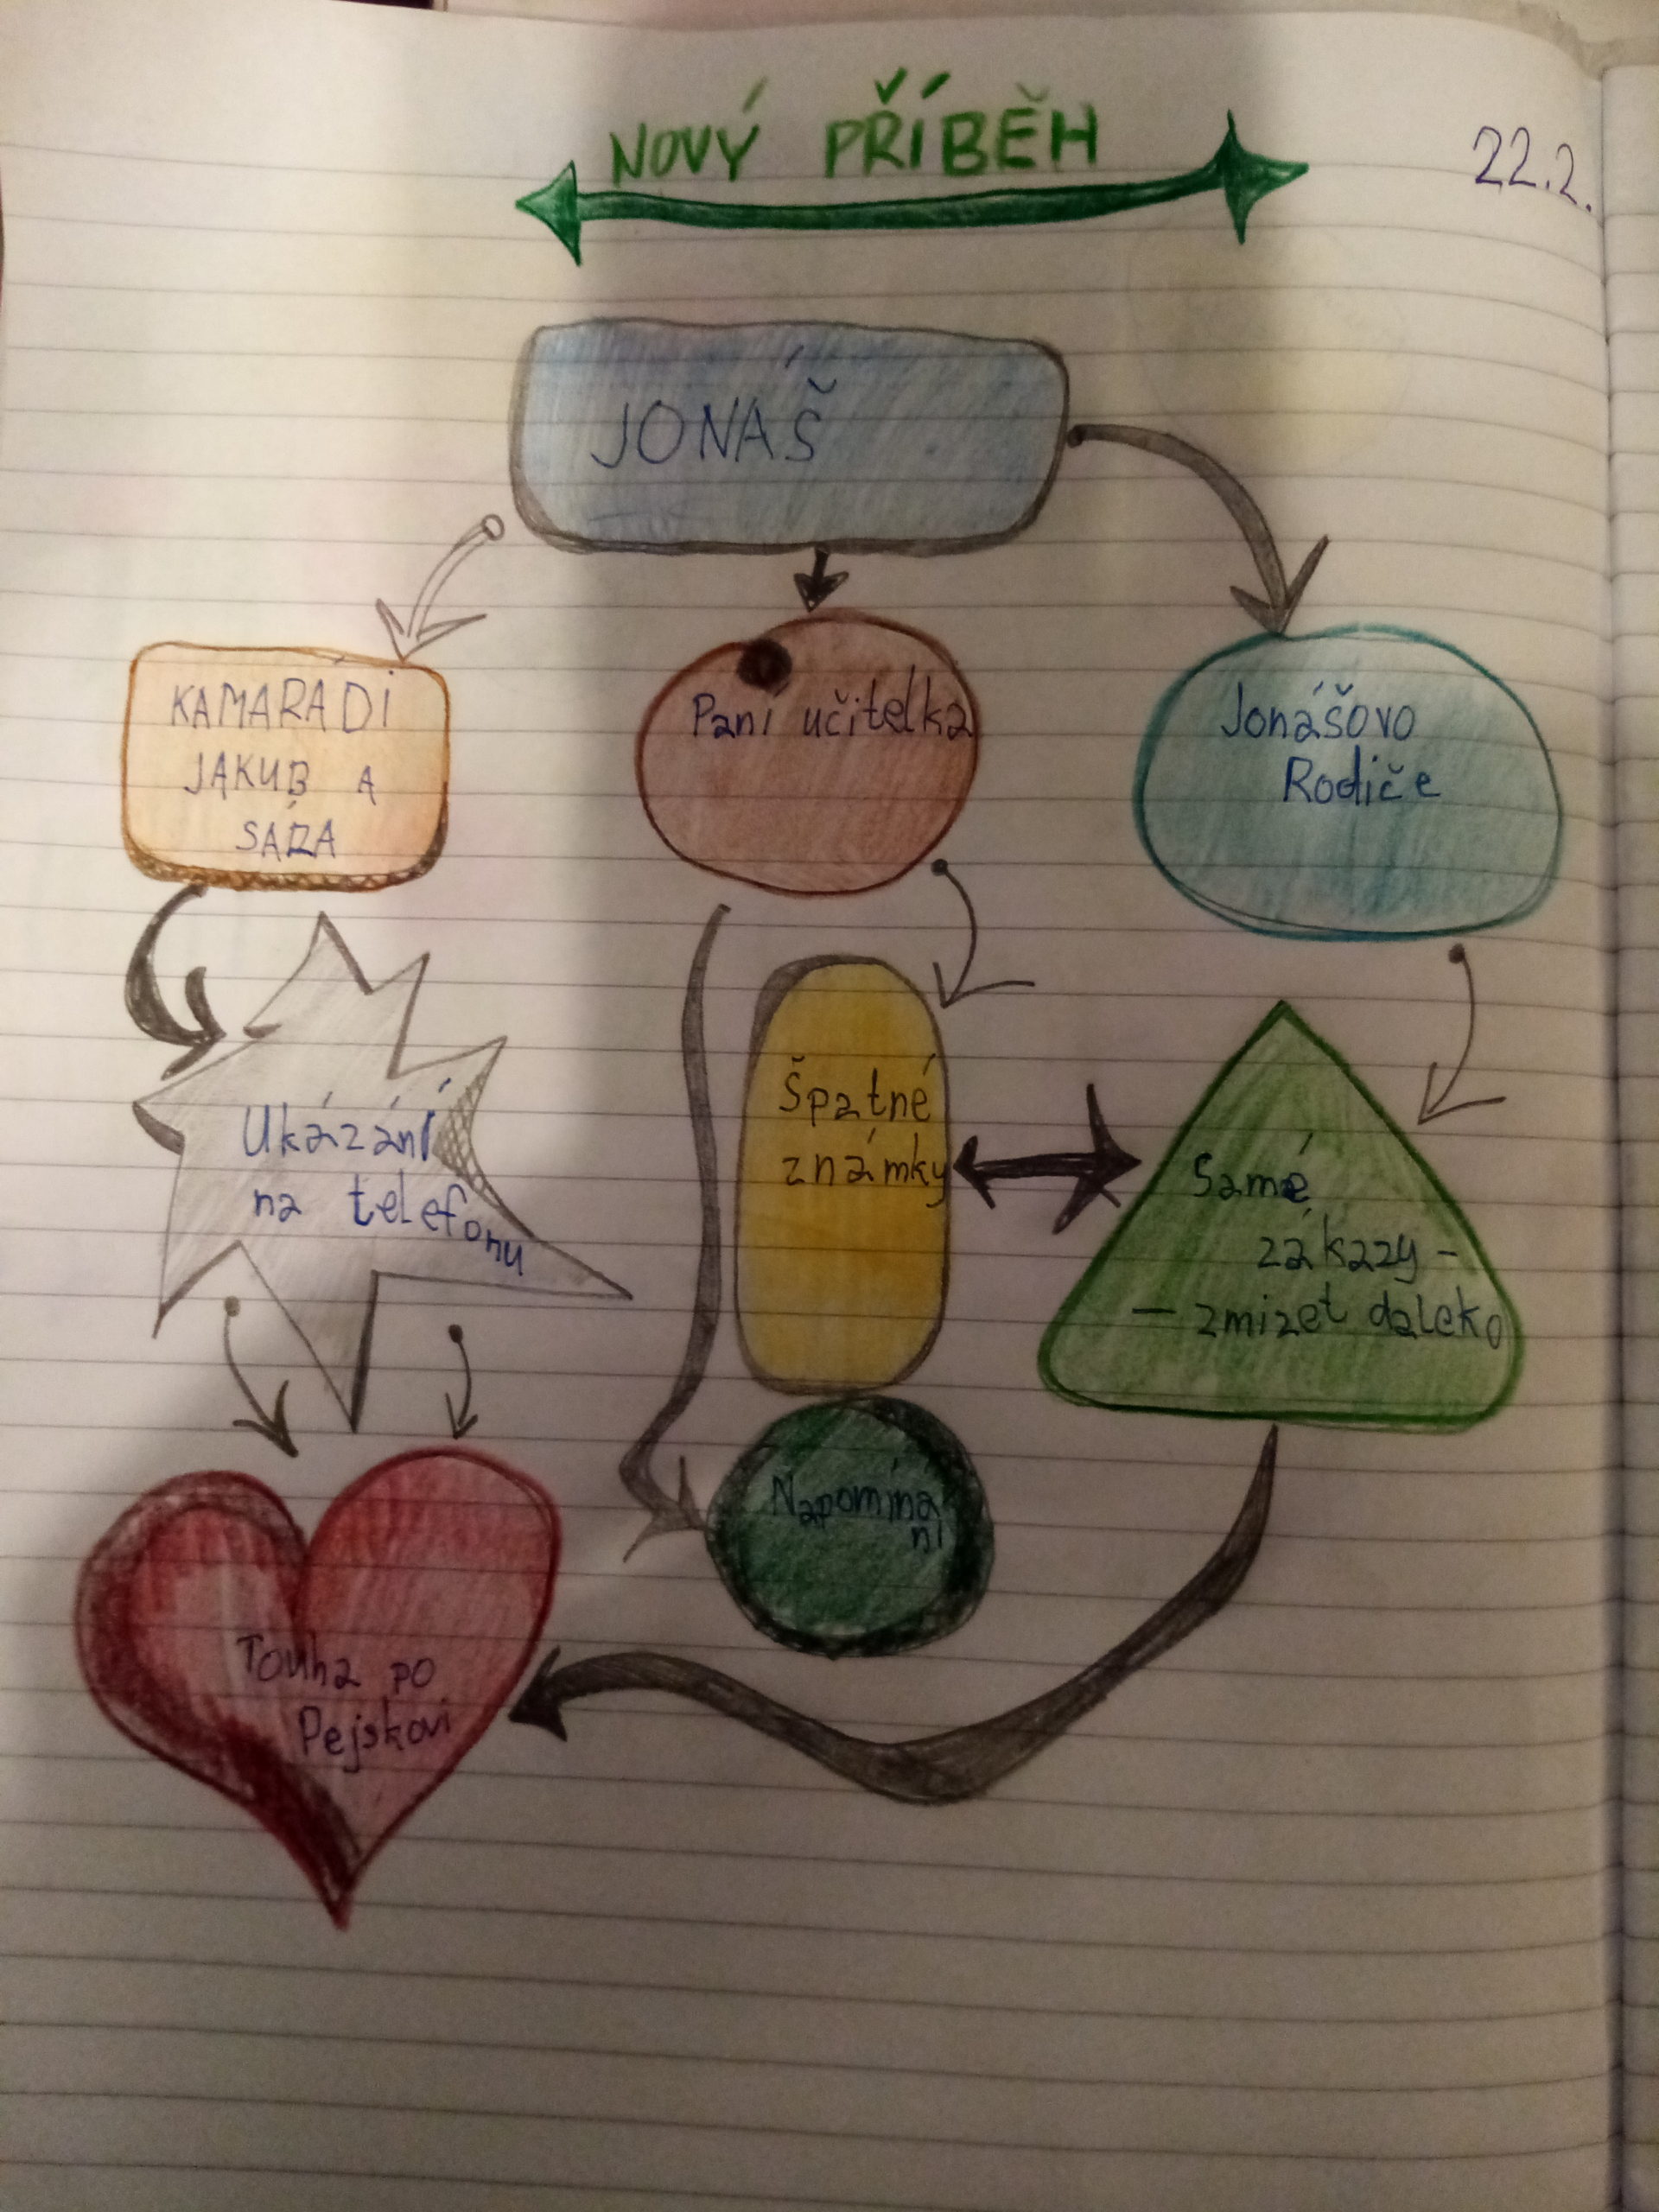 NOVÝ PŘÍBĚH
22.2.
JONÁŠ
KAMARÁDI
JAKUB A
SÁRA
Paní učitelka
Jonášovo
Rodiče
Ukázání
na telefonu
Špatné
známky
Samé
zákazy -
- zmizet daleko
Napomíná
ní
Touha po
Pejskovi